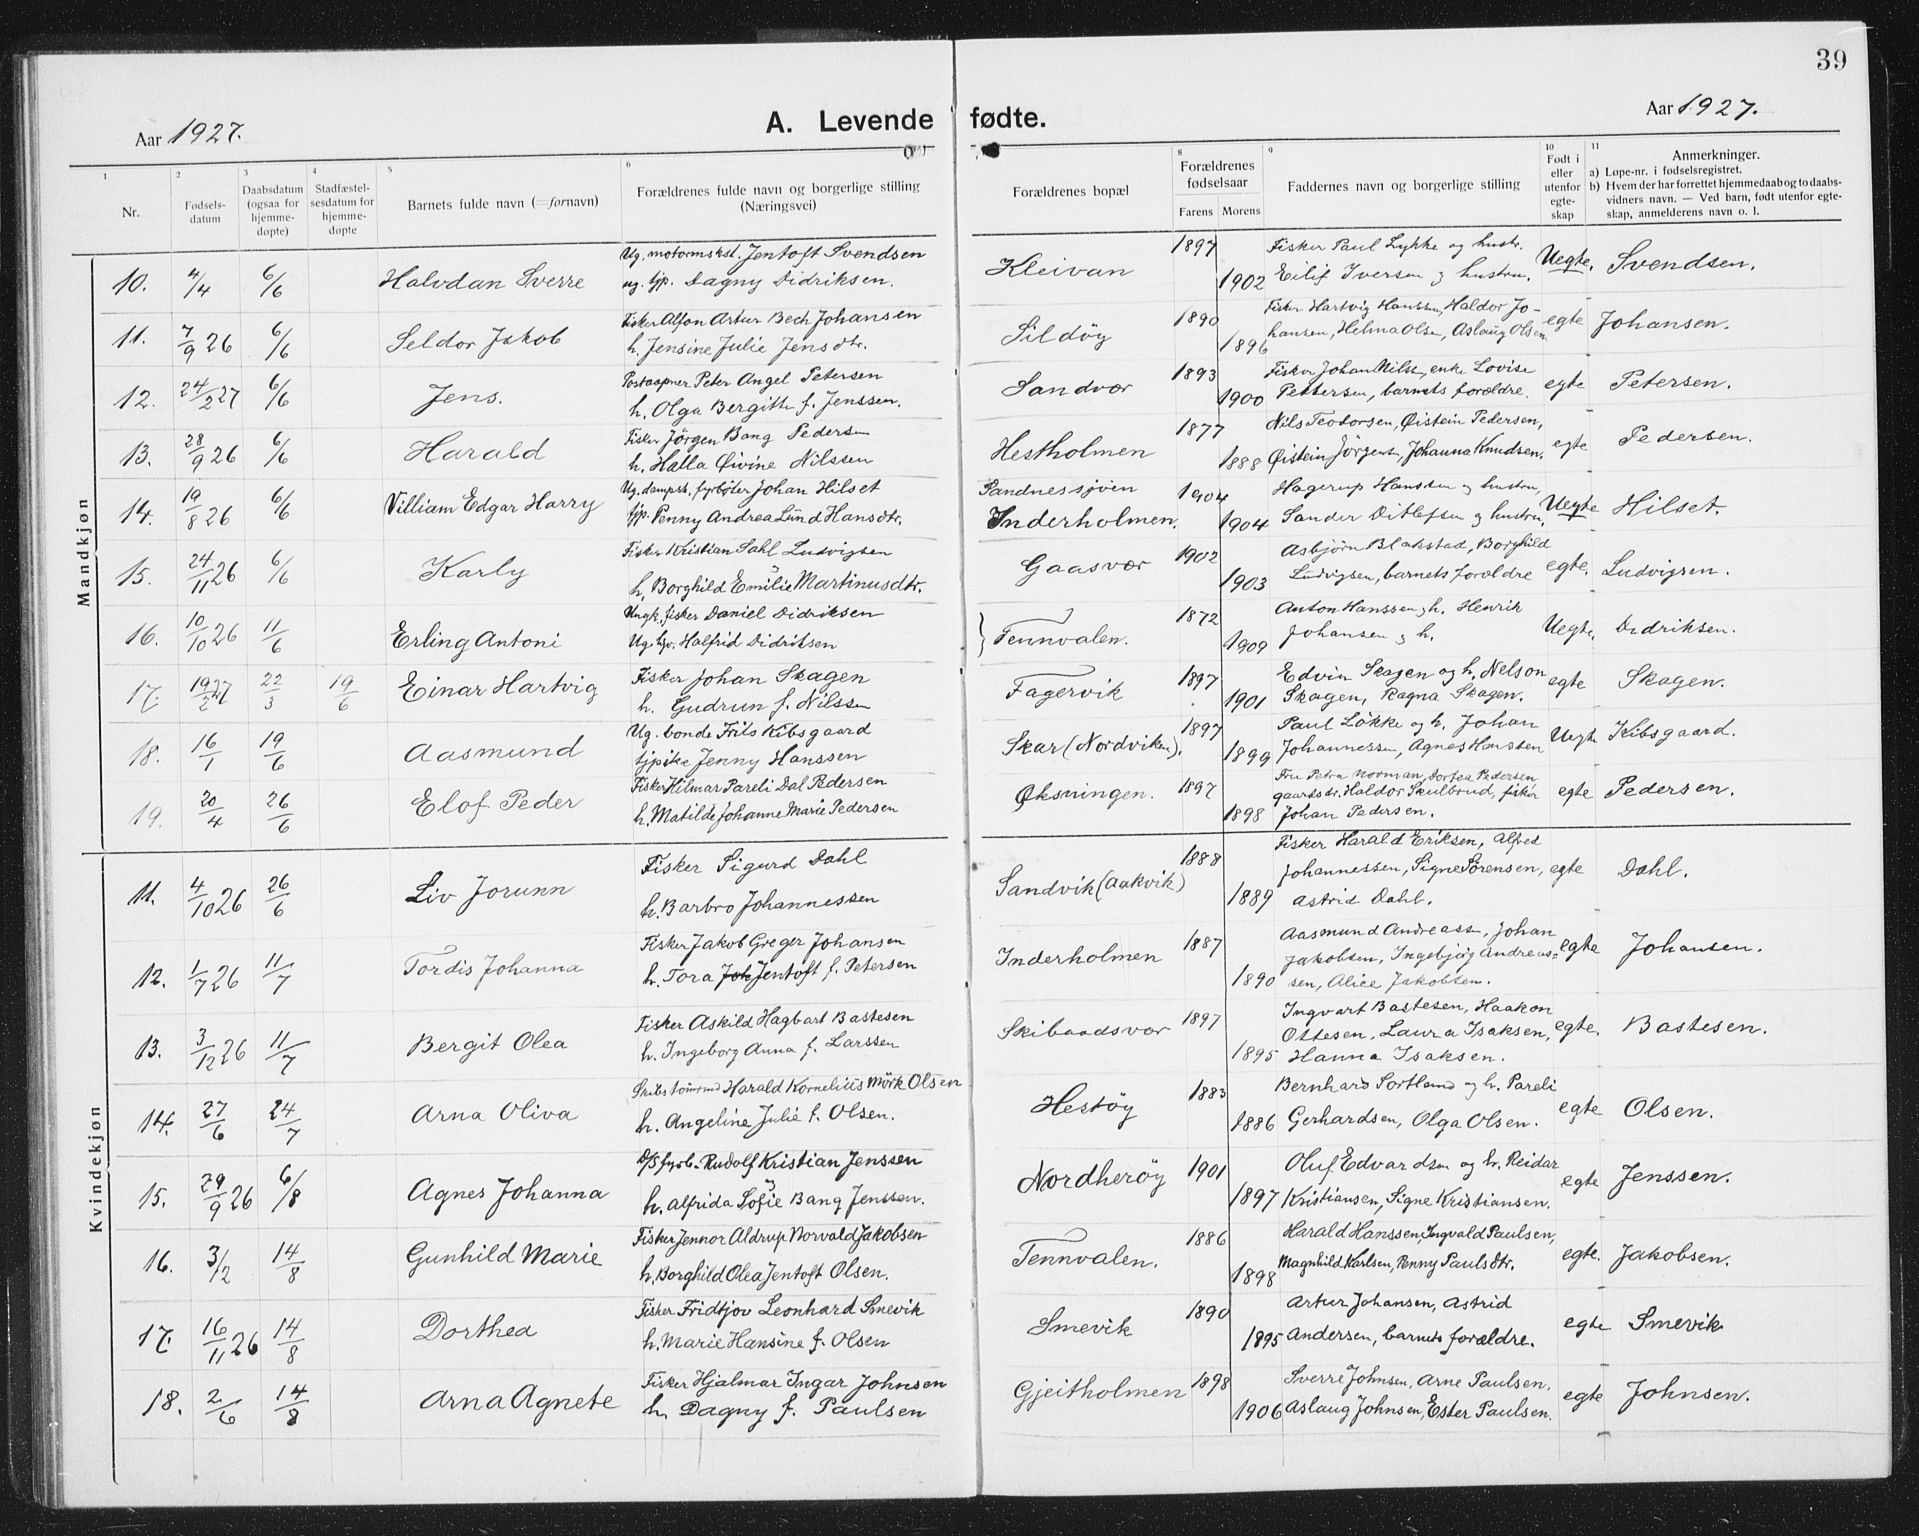 39
Aar 1927.
A. Levende fødte.
Aar 1927.
1 2 3 4 5 6 8 9 10 11
Nr.
Fødsels-
datum
Daabsdatum
(ogsaa for
hjemme-
døpte)
Stadfæstel-
sesdatum for
hjemme-
døpte
Barnets fulde navn (=fornavn)
Forældrenes fulde navn og borgerlige stilling
(Næringsvei)
Forældrenes bopæl
Forældrenes
fødselsaar
Farens Morens
Faddernes navn og borgerlige stilling
Født i
eller
utenfor
egte-
skap
Anmerkninger.
a) Løpe-nr. i fødselsregistret.
b) Hvem der har forrettet hjemmedaab og to daabs-
vidners navn. — Ved barn, født utenfor egte-
skap, anmelderens navn o. l.
Mandkjøn
10. 4/4 6/6 Halvdan Sverre
Ug. motormskst. Jentoft Svendsen
ug. tjp. Dagny Didriksen.
Kleivan 1897 1902
Fisker Paul Lykke og hustr.
Eilif Iversen og hustru.
Uegte. Svendsen.
11. 7/9 26 6/6 Seldor Jakob
Fisker Alfon Artur Bech Johansen
h. Jensine Julie Jensdtr.
Sildöy 1890 1896
Fisker Hartvig Hanssen, Haldor Jo-
hansen, Helma Olsen, Aslaug Olsen.
egte Johansen.
12. 24/2 27 6/6 Jens.
Postaapner Peter Angel Petersen
h. Olga Bergitte f. Jenssen.
Sandvær 1893 1900
Fisker Johan Nilsen, enke Lovise
Pettersen, barnets forældre.
egte Petersen.
13. 28/9 26 6/6 Harald
Fisker Jörgen Bang Pedersen
h. Hella Øivine Nilssen
Hestholmen 1877 1888
Nils Teodorsen, Øistein Pedersen,
Øistein Jörgensen, Johanna Knudsen.
egte Pedersen.
14. 19/8 26 6/6 Villiam Edgar Harry
Ug. dampsk. fyrböter Johan Hilset
tjp. Penny Andrea Lund Hansdtr.
Sandnessjöen
Inderholmen. 1904 1904
Hagerup Hanssen og hustru,
Sander Ditlefsen og hustru.
Uegte Hilset.
15. 24/11 26 6/6 Karly
Fisker Kristian Dahl Ludvigsen
h. Borghild Emilie Martinusdtr.
Gaasvær 1902 1903
Asbjørn Blakstad, Borghild
Ludvigsen, barnets forældre
egte. Ludvigsen.
16. 10/10 26 11/6 Erling Antoni
Ungk. fisker Daniel Didriksen
Ug. tjp. Halfrid Didriksen
Tennvalen. 1872 1909
Anton Hanssen og h. Henrik
Johansen og h.
Uegte. Didriksen.
17. 19/2 27 22/3 19/6 Einar Hartvig
Fisker Johan Skagen
h. Gudrun f. Nilssen
Fagervik 1897 1901
Edvin Skagen og h. Nelson
Skagen, Ragna Skagen.
egte Skagen.
18. 16/1 19/6 Aasmund
Ug. bonde Frits Kibsgaard
tjpike Jenny Hanssen
Skar (Nordviken). 1897 1899
Paul Løkke og h. Johan
Johannessen, Agnes Hanssen
Uegte Kibsgaard.
19. 20/4 26/6 Elof Peder
Fisker Hilmar Pareli Dal Pedersen
h. Matilde Johanne Marie Pedersen
Øksningen. 1897 1898
Fru Petra Norman, Dortea Pedersen
gaardstr. Haldor Skulbrud, fisker
Johan Pedersen.
egte Pedersen.
Kvindekjøn
11. 4/10 26 26/6 Liv Jorunn
Fisker Sigurd Dahl
h. Barbro Johannessen
Sandvik (Aakvik) 1888 1889
Fisker Harald Eriksen, Alfred
Johannessen, Signe Sørensen,
Astrid Dahl.
egte Dahl.
12. 1/7 26 11/7 Tordis Johanna
Fisker Jakob Greger Johansen
h. Tora Joh Jentoft f. Petersen
Inderholmen 1887 1890
Aasmund Andreass, Johan
Jakobsen, Ingebjörg Andreas=
sen, Alice Jakobsen.
egte Johansen.
13. 3/12 26 11/7 Bergit Olea
Fisker Askild Hagbart Bastesen
h. Ingeborg Anna f. Larssen
Skibaadsvær 1897 1895
Ingvart Bastesen, Haakon
Ottesen, Laura Isaksen,
Hanna Isaksen.
egte. Bastesen.
14. 27/6 24/7 Arna Oliva
Skibstömmd Harald Kornelius Mörk Olsen
h. Angeline Julie f. Olsen.
Hestöy 1883 1886
Bernhard Sortland og h. Pareli
Gerhardsen, Olga Olsen.
egte Olsen.
15. 29/9 26 6/8 Agnes Johanna
D/S fyrb. Rudolf Kristian Jenssen
h. Alfrida Sofie Bang Jenssen.
Nordheröy 1901 1897
Oluf Edvardsen og h. Reidar
Kristiansen, Signe Kristiansen.
egte Jenssen.
16. 3/2 14/8 Gunhild Marie
Fisker Jennor Aldrup Norvald Jakobsen
h. Borghild Olea Jentoft Olsen.
Tennvalen. 1886 1898
Harald Hanssen, Ingvald Paulsen,
Magnhild Karlsen, Penny Paulsdtr.
egte. Jakobsen.
17. 16/11 26 14/8 Dorthea
Fisker Fridtjov Leonhard Smevik
h. Marie Hansine f. Olsen
Smevik 1890 1895
Artur Johansen, Astrid
Andersen, barnets forældre.
egte Smevik
18. 2/6 14/8 Arna Agnete
Fisker Hjalmar Ingar Johnsen
h. Dagny f. Paulsen
Gjeitholmen 1898 1906
Sverre Johnsen, Arne Paulsen.
Aslaug Johnsen, Ester Paulsen.
egte Johnsen.